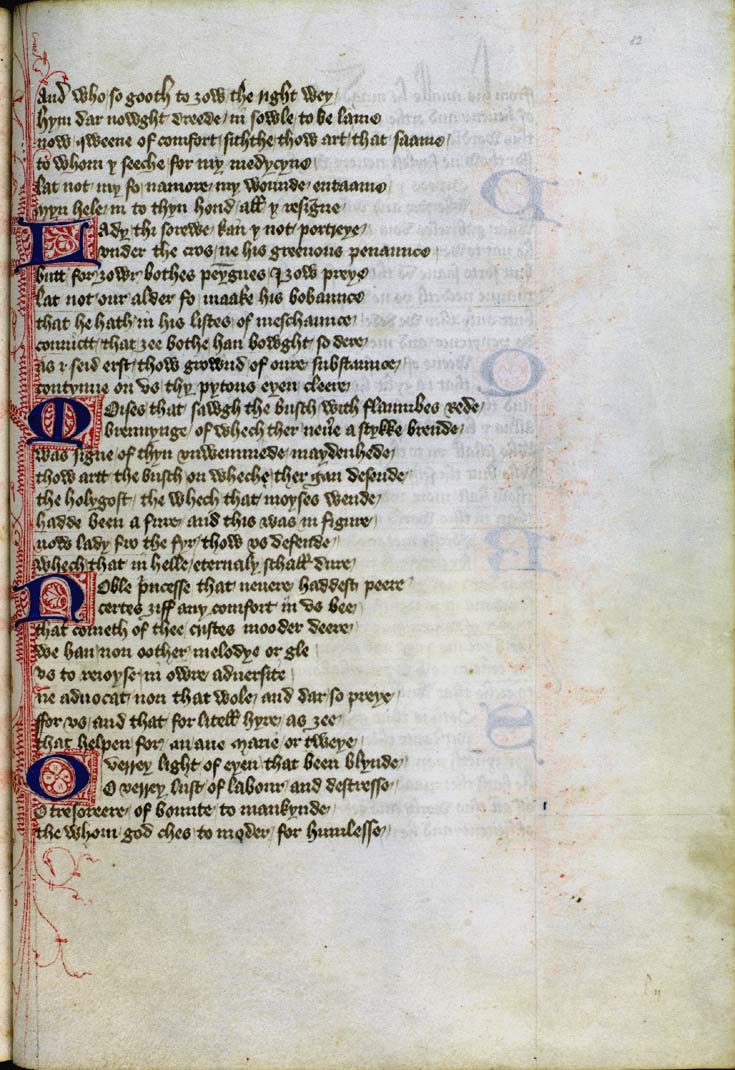 And who so gooth to ȝow the right wey
hym dar nowght dreede in sowle to be lame
now qweene of comfort siththe thow art that saame
to whom y seeche for my medycyne
lat not my fo namore my wounde entaame
myn hele in to thyn hond all y resigne
Lady thi sorwe kan y not portreye
vnder the cros ne his greeuous penaunce
butt for ȝowr bothes peygnes I ȝow preye
lat not our alder fo maake his bobaunce
that he hath in his listes of meschaunce
conuictt that ȝee bothe han bowght so dere
as I seid erst thow grownd of oure substaunce
contynue on vs thy pytous eyen cleere
Moises that sawgh the busch with flaumbes rede
brennynge of whech ther neuer a stykke brende
was signe of thyn vnwemmede maydenhede
thow artt the busch on wheche ther gan desende
the holygost the whech that moyses wende
hadde been a fuire and this was in figure
now lady fro the fyr thow vs defende
whech that in helle eternaly schall dure
Noble princesse that neuere haddest peere
certes ȝiff any comfort in vs bee
that cometh of thee cristes mooder deere
we han non oother melodye or gle
vs to reioyse in owre aduersite
ne aduocat non that wole and dar so preye
ffor vs and that for litell hyre as ȝee
that helpen for an aue marie or tweye
O verrey light of eyen that been blynde
O verrey lust of labour and destresse
O tresoreere of bounte to mankynde
the whom god ches to moder for humlesse